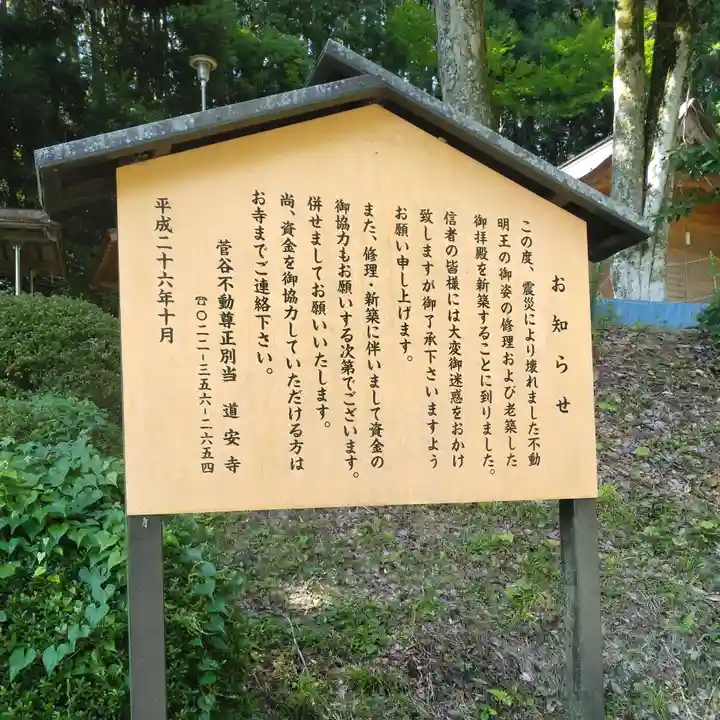 お知らせ
この度、震災により壊れました不動
明王の御姿の修理および老築した
御拝殿を新築することに到りました。
信者の皆様には大変御迷惑をおかけ
致しますが御了承下さいますよう
お願い申し上げます。
また、修理・新築に伴いまして資金の
御協力もお願いする次第でございます。
併せましてお願いいたします。
尚、資金を御協力していただける方は
お寺までご連絡下さい。
菅谷不動尊正別当 道安寺
☎〇二二−三五六−二六五四
平成二十六年十月